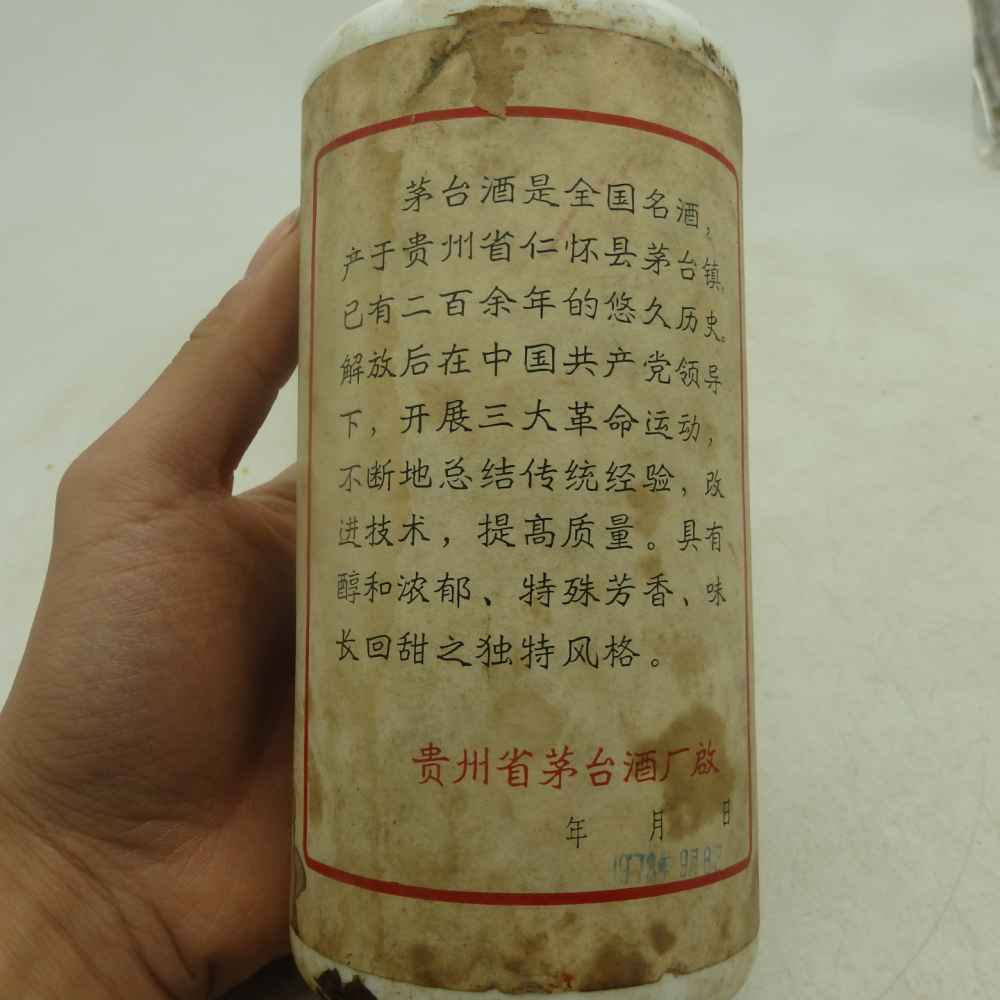 茅台酒是全国名酒，
产于贵州省仁怀县茅台镇，
已有二百余年的悠久历史。
解放后在中国共产党领导
下，开展三大革命运动，
不断地总结传统经验，改
进技术，提高质量。具有
醇和浓郁、特殊芳香、味
长回甜之独特风格。
贵州省茅台酒厂啟
年 月 日
1978年9月8日